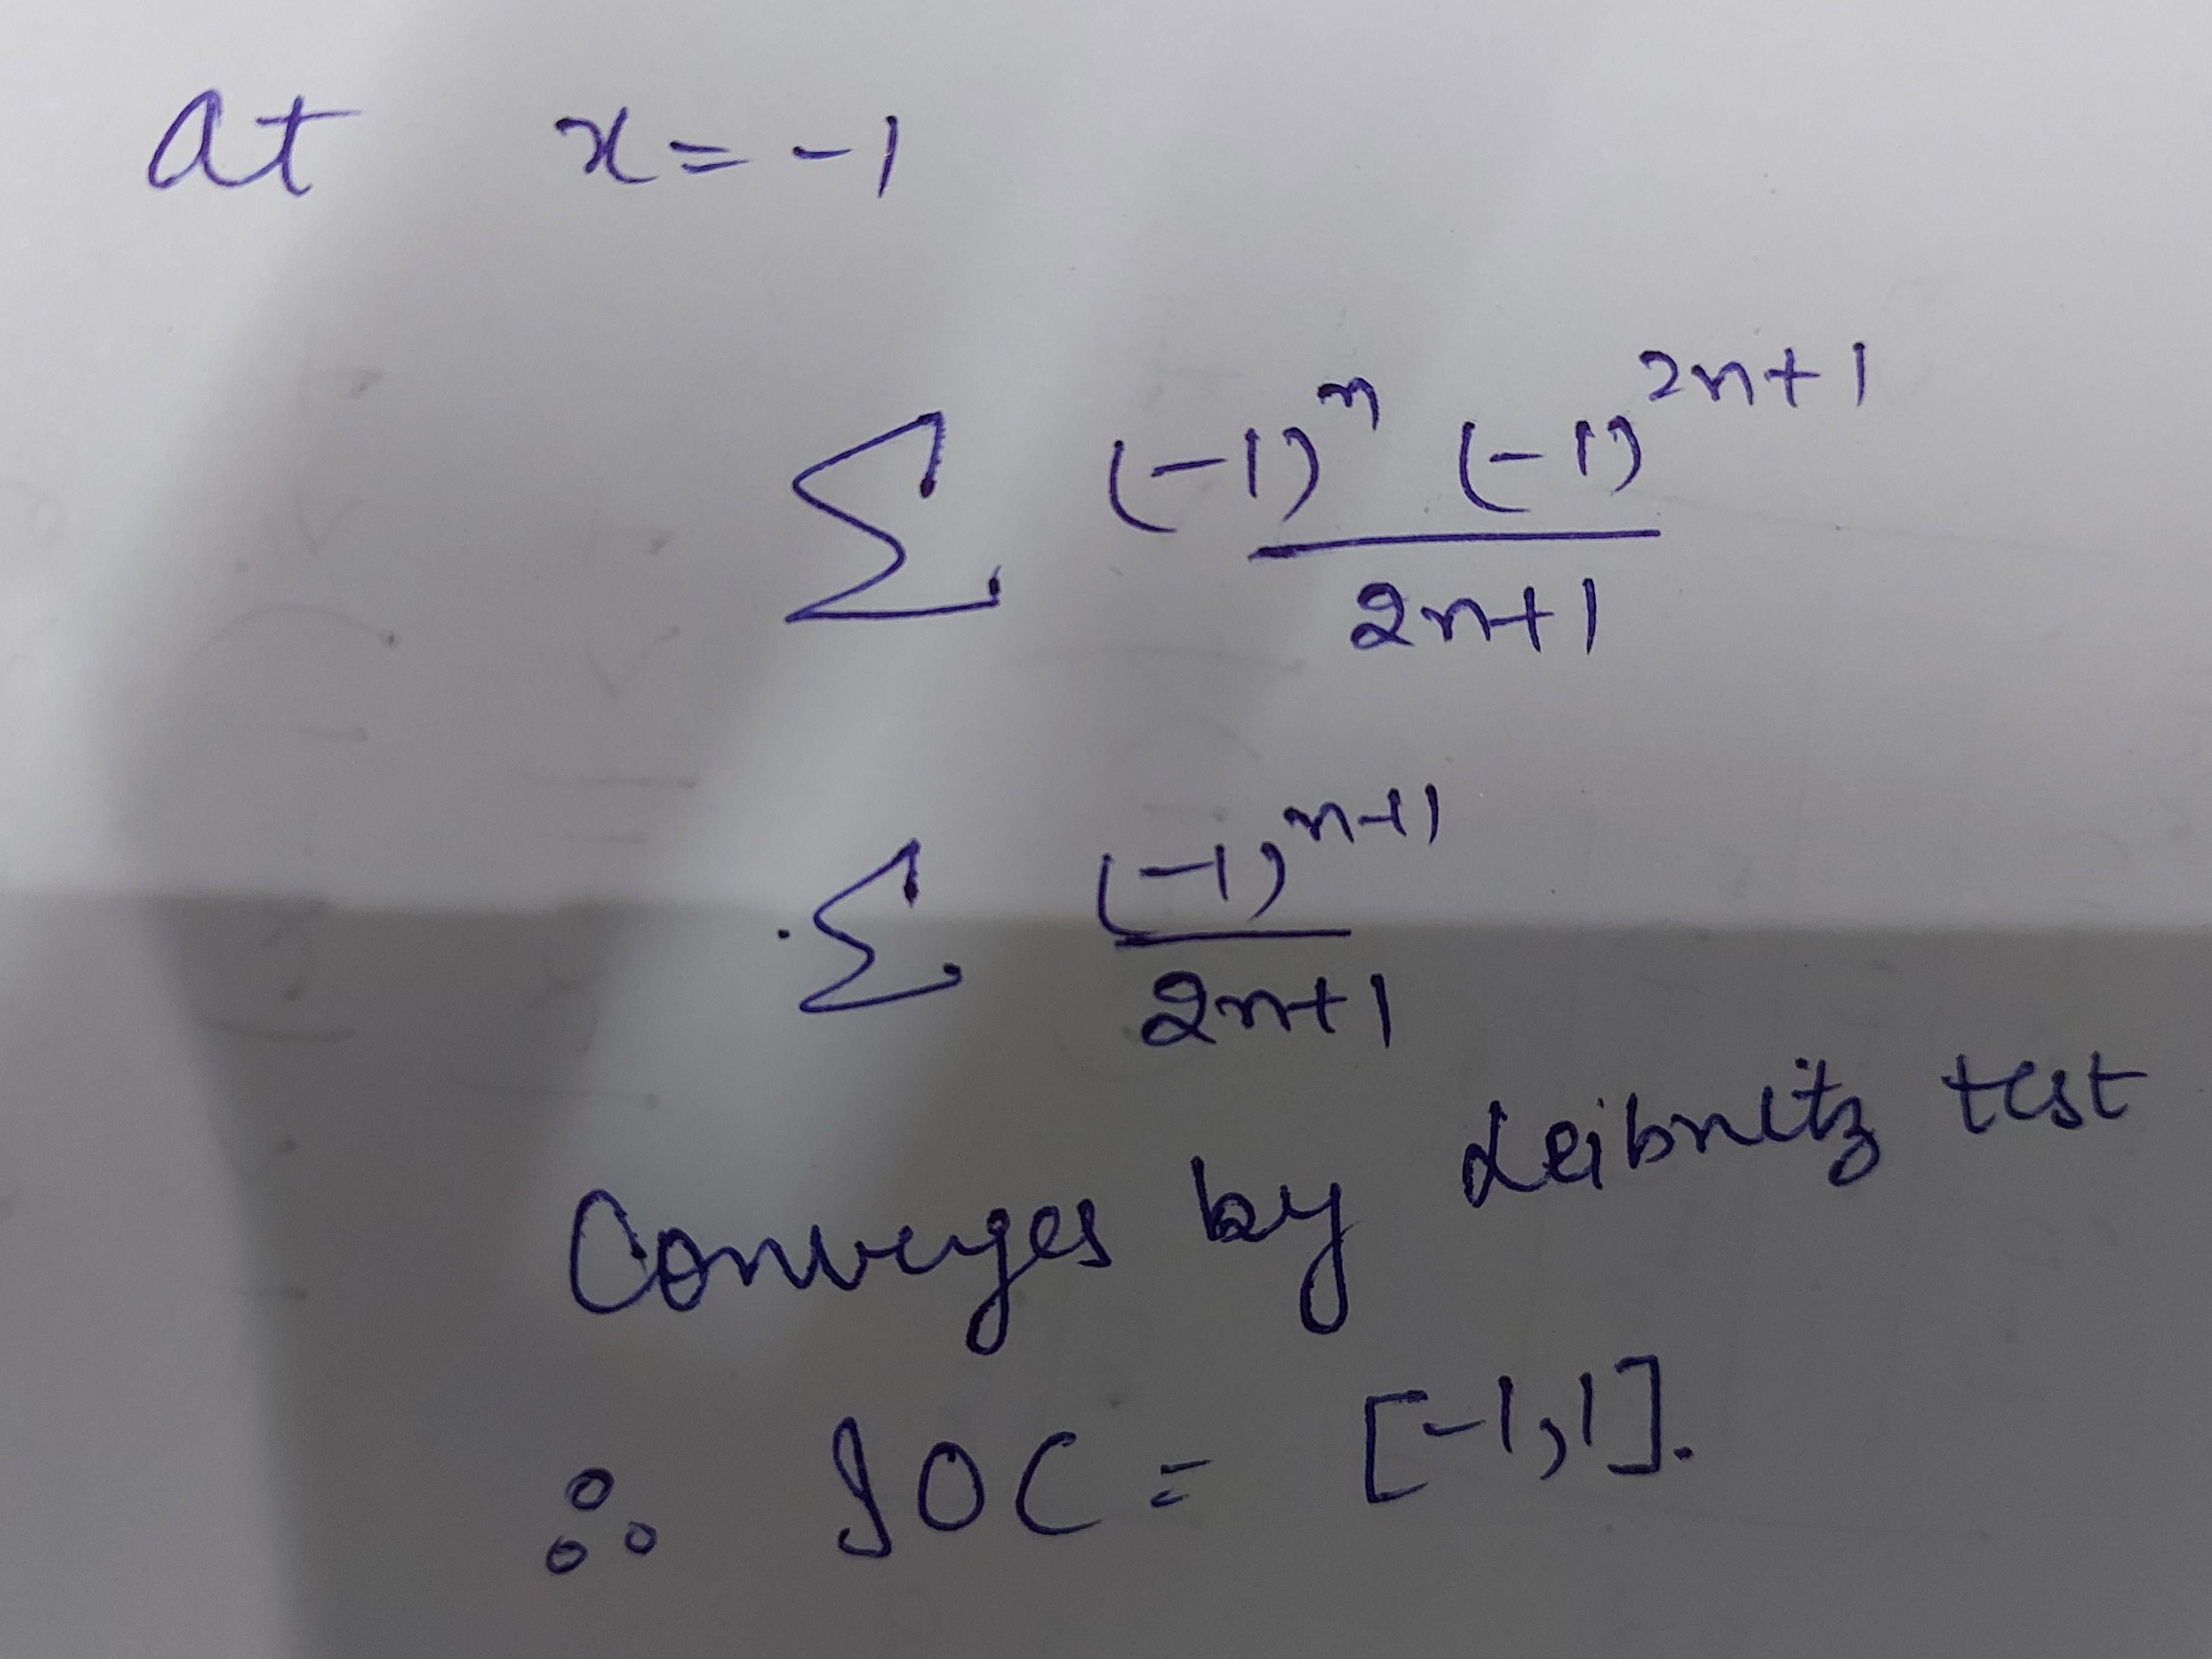 at x = -1
∑ (-1)^n (-1)^{2n+1} / 2n+1
∑ (-1)^{n+1} / 2n+1
Converges by Leibnitz test
∴ IOC = [-1,1].